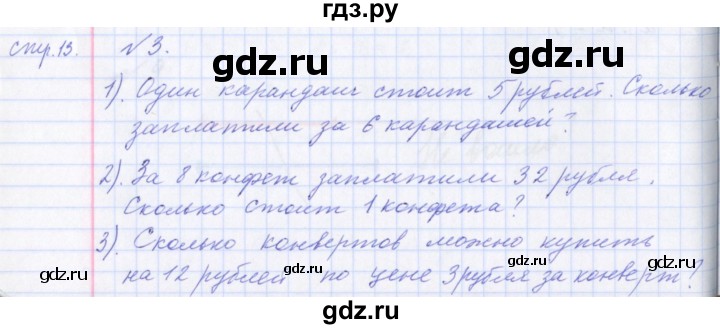 гдз.ру
стр.13. №3.
gdz.ru gdz.ru
1). Один карандаш стоит 5 рублей. Сколько
заплатили за 6 карандашей?
gdz.ru gdz.ru
2). За 8 конфет заплатили 32 рубля.
Сколько стоит 1 конфета?
gdz.ru gdz.ru
3). Сколько конвертов можно купить
на 12 рублей по цене 3 рубля за конверт?
gdz.ru gdz.ru gdz.ru
gdz.ru